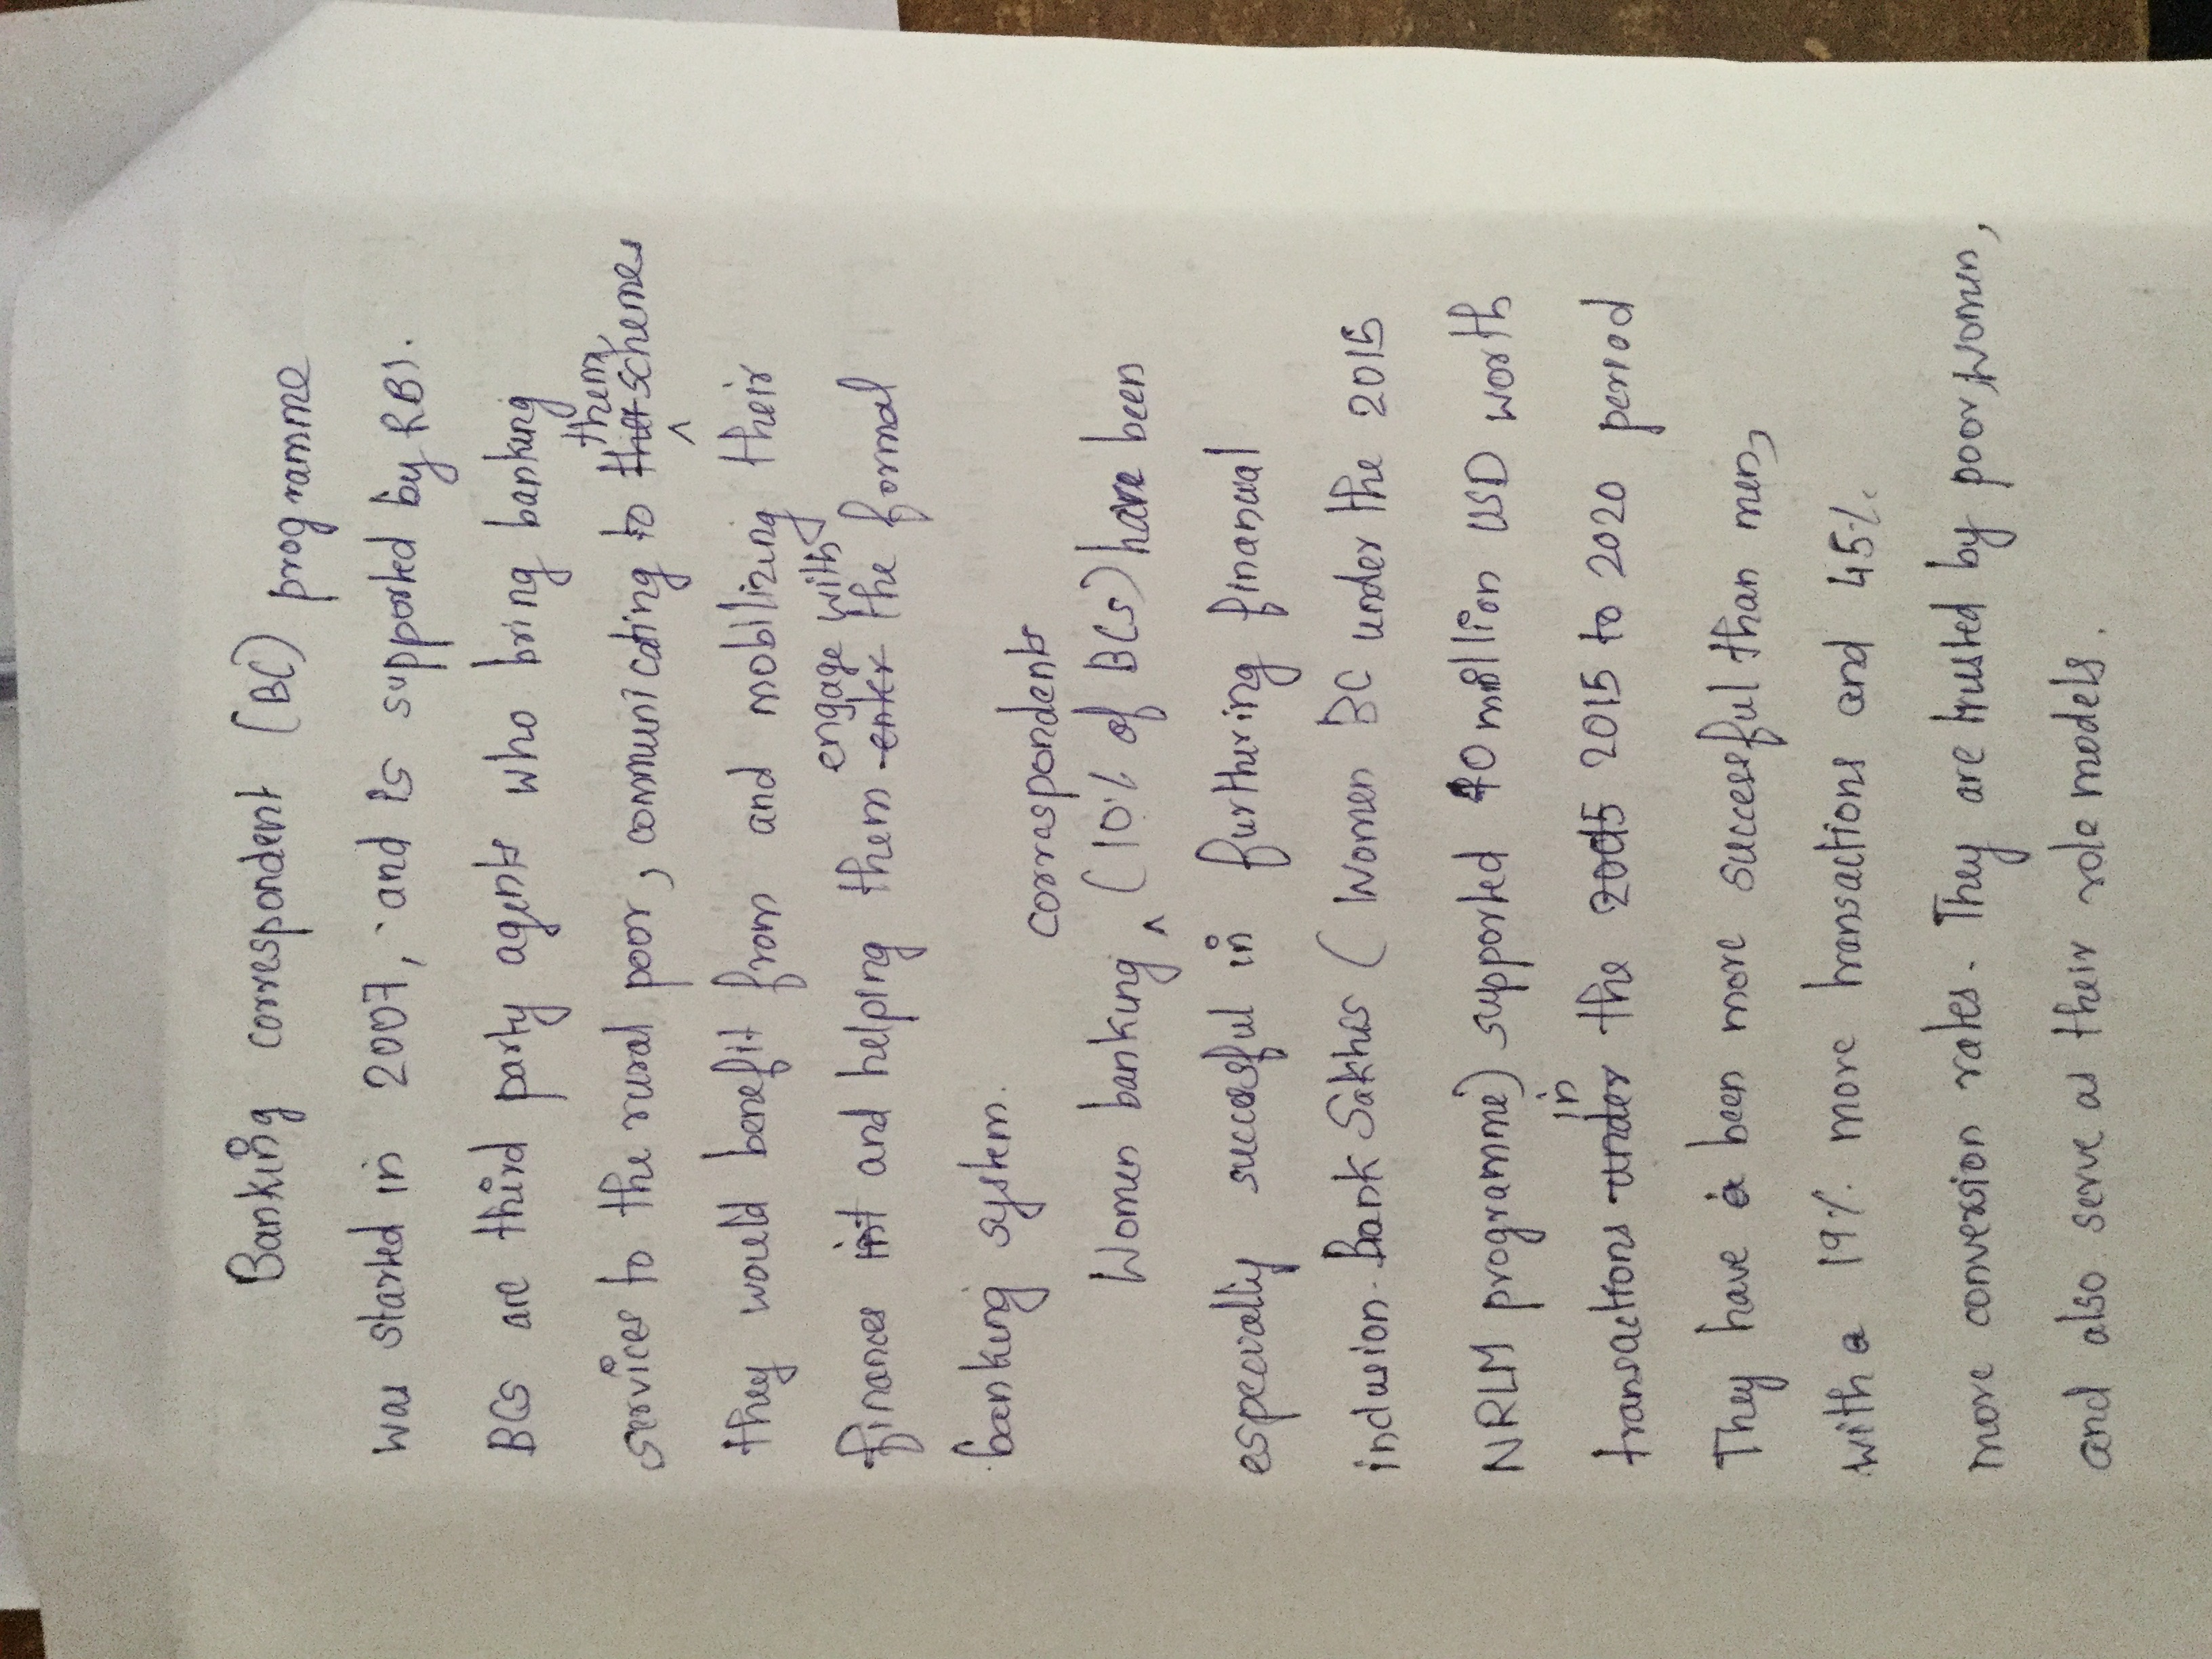 Banking correspondent (BC) programme
was started in 2007, and is supported by RBI.
BCs are third party agents who bring banking
services to the rural poor, communicating to them schemes
they would benefit from and mobilizing their
finances and helping them engage with the formal
banking system.
Women banking correspondents (10% of BCs) have been
especially successful in furthuring financial
inclusion. Bank Sakhis (Women BC under the 2015
NRLM programme) supported 40 million USD worth
transactions in the 2015 to 2020 period
They have been more successful than men,
with a 19% more transactions and 45%
more conversion rates. They are trusted by poor women,
and also serve as their role models.